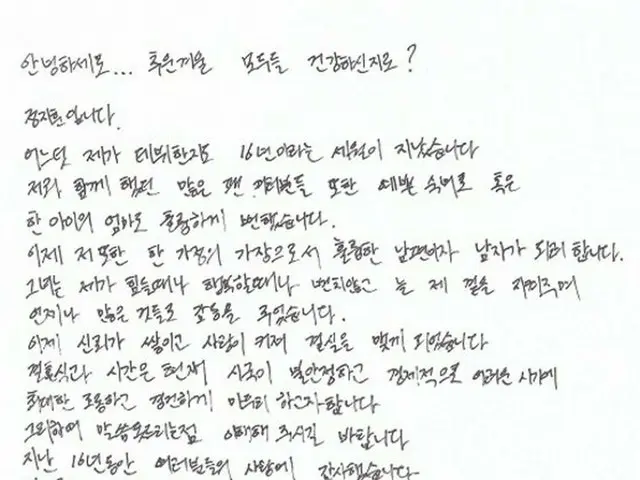 안녕하세요... 추운겨울 모두들 건강하신지요?
정지훈입니다.
어느덧 제가 데뷔한지도 16년이라는 세월이 지났습니다
저와 함께 했던 많은 팬 여러분들 또한 예쁜 숙녀로 혹은
한 아이의 엄마로 훌륭하게 변했습니다.
이제 저 또한 한 가정의 가장으로서 훌륭한 남편이자 남자가 되려 합니다.
그녀는 제가 힘들때나 행복할때나 변치않고 늘 제 곁을 지켜주며
언제나 많은 것들로 감동을 주었습니다.
이제 신뢰가 쌓이고 사랑이 커져 결실을 맺게 되었습니다
결혼식과 시간은 현재 시국이 불안정하고 경제적으로 어려운 시기에
최대한 조용하고 경건하게 마무리 하고자합니다
그리하여 말씀못드리는점 이해해 주시길 바랍니다
지난 16년동안 여러분들의 사랑에 감사했습니다